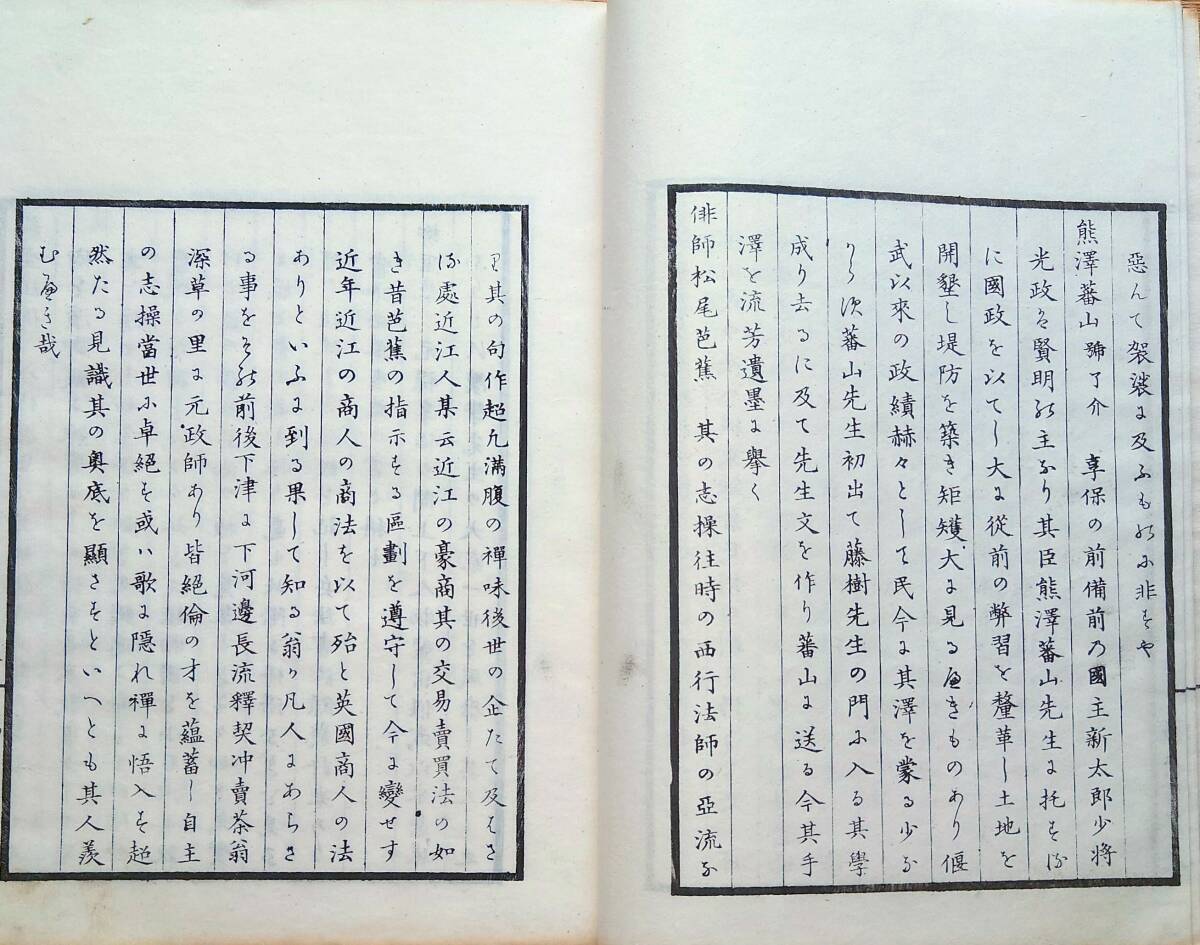 惡んて袈裟に及ふもの尓非すや
熊澤蕃山 號了介 享保の前備前乃國主新太郎少將
光政ハ賢明の主なり其臣熊澤蕃山先生に托する
に國政を以てし大に從前の弊習を釐革し土地を
開墾し堤防を築き矩矱大に見るへきものあり偃
武以來の政績赫々として民今に其澤を蒙る少な
りらす蕃山先生初出て藤樹先生の門尓入る其學
成り去るに及て先生文を作り蕃山に送る今其手
澤を流芳遺墨に擧く
俳師松尾芭蕉 其の志操往時の西行法師の亞流な
り其の句作超凡滿腹の禪味後世の企たて及はさ
る處近江人某云近江の豪商其の交易賣買法の如
き昔芭蕉の指示する區劃を遵守して今に變せす
近年近江の商人の商法を以て殆と英國商人の法
ありといふに到る果して知る翁か凡人にあらさ
る事をその前後下津に下河邊長流釋契冲賣茶翁
深草の里に元政師あり皆絕倫の才を蘊蓄し自主
の志操當世尓卓絕す或ハ歌に隱れ禪に悟入す超
然たる見識其の奧底を顯さすといへとも其人羨
むへき哉